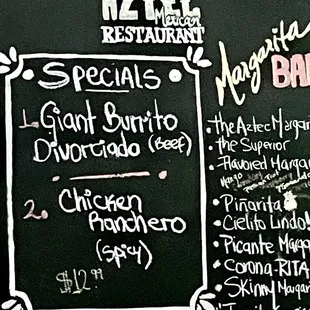 AZTEC
Mexican
RESTAURANT
SPECIALS
1. Giant Burrito
Divorciado (Beef)
2. Chicken
Ranchero
(Spicy)
$12.99
Margarita
BA
• the Aztec Margar
• the Superior
• Flavored Margar
Mango
• Piñarita
• Cielito Lindo!
• Picante Marga
• Corona-RITA
• Skinny Margar